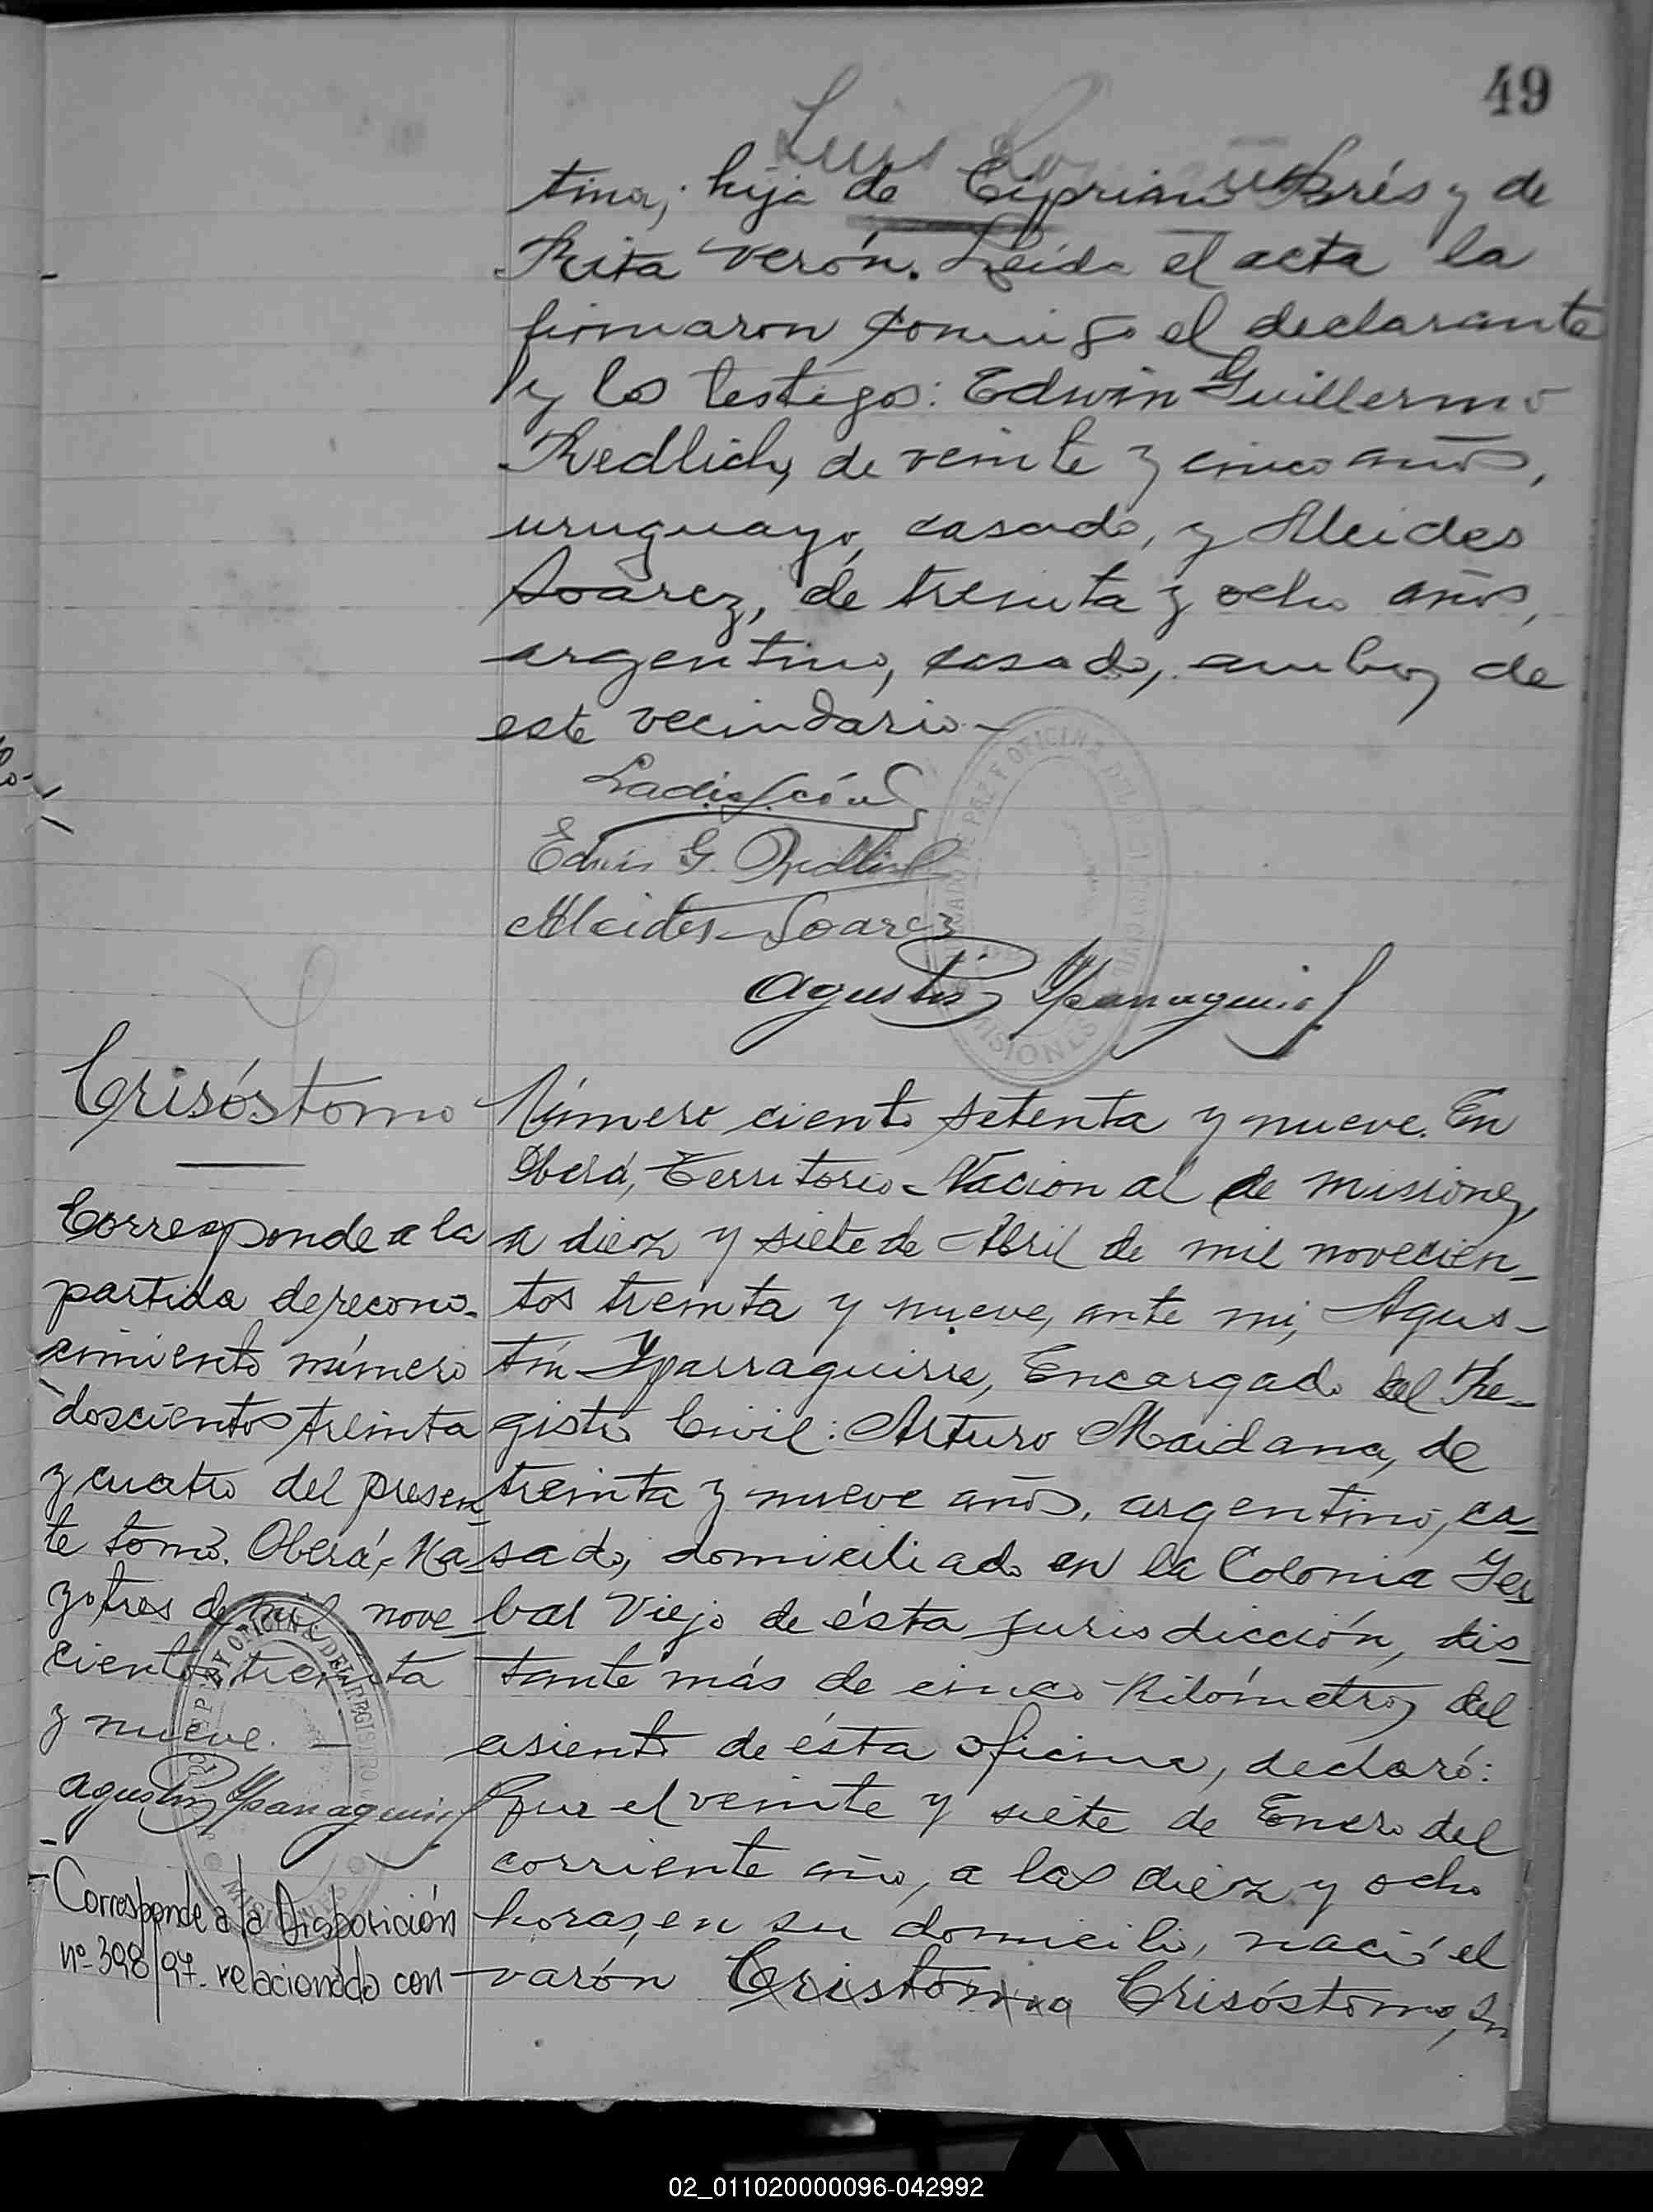 49
Luis
tina, hija de Cipriano Prés y de
Rita Verón. Leída el acta la
firmaron conmigo el declarante
y los testigos: Edwin Guillermo
Redlich, de veinte y cinco años,
uruguayo, casado, y Alcides
Soarez, de treinta y ocho años,
argentino, casado, ambos de
este vecindario-
Edwin G. Redlich
Alcides Soarez
Agustín Yparraguirre
Crisóstomo
Corresponde a la
partida de recono-
cimiento número
doscientos treinta
y cuatro del presen
te tomo. Oberá, Ma-
yo tres de mil nove-
cientos treinta
y nueve. —
Agustín Yparraguirre
Corresponde a la Disposición
nº 398/97 relacionado con
Número ciento setenta y nueve. En
Oberá, Territorio Nacional de Misiones,
a diez y siete de Abril de mil novecien-
tos treinta y nueve, ante mi, Agus-
tín Yparraguirre, Encargado del Re-
gistro Civil: Arturo Maidana, de
treinta y nueve años, argentino, ca-
sado, domiciliado en la Colonia Yer
bal Viejo de ésta jurisdicción, dis-
tante más de cinco kilómetros del
asiento de ésta oficina, declaró:
Que el veinte y siete de Enero del
corriente año, a las diez y ocho
horas, en su domicilio, nació el
varón Cristómna Crisóstomo,
02_011020000096-042992